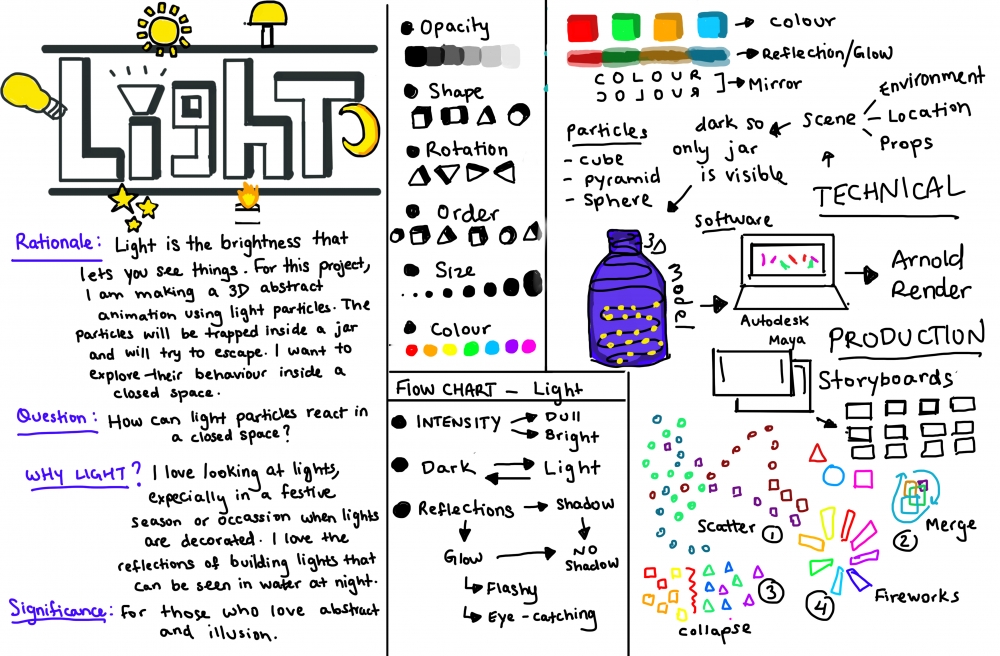 Light
Rationale: Light is the brightness that
lets you see things. For this project,
I am making a 3D abstract
animation using light particles. The
particles will be trapped inside a jar
and will try to escape. I want to
explore their behaviour inside a
closed space.
Question: How can light particles react in
a closed space?
WHY LIGHT? I love looking at lights,
expecially in a festive
season or occassion when lights
are decorated. I love the
reflections of building lights that
can be seen in water at night.
Significance: For those who love abstract
and illusion.
Opacity
Shape
Rotation
Order
Size
Colour
FLOW CHART - Light
INTENSITY
Dull
Bright
Dark
Light
Reflections
Shadow
Glow
NO
Shadow
Flashy
Eye-catching
Colour
Reflection/Glow
COLOUR
COLOUR
Mirror
Particles
- Cube
- Pyramid
- Sphere
dark so
only jar
is visible
Scene
Environment
Location
Props
TECHNICAL
Software
3D
Model
Autodesk
Maya
Arnold
Render
PRODUCTION
Storyboards
Scatter 1
Merge
2
3
Collapse
4
Fireworks